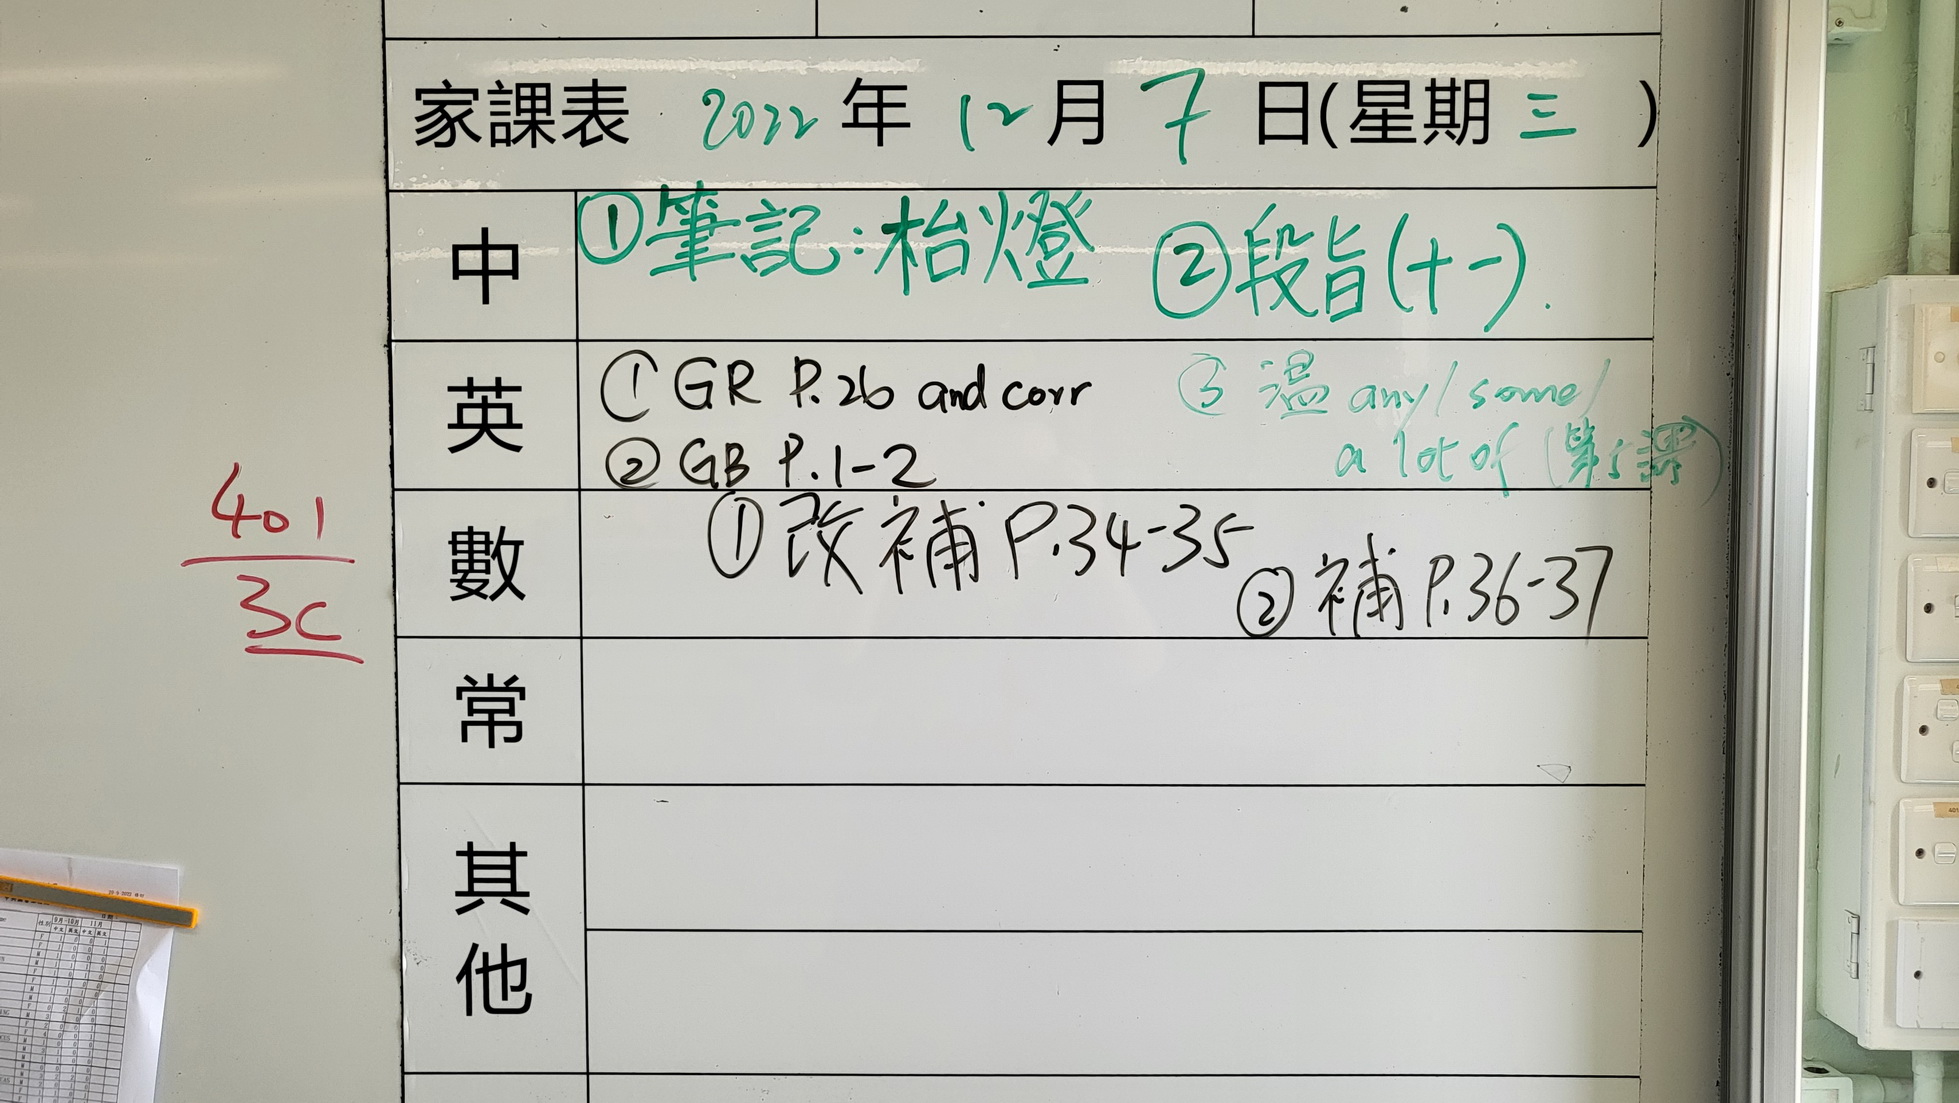 家課表 2022年12月7日(星期三)
中 ①筆記:枱燈 ②段旨(十一).
英 ① GR P.26 and corr ③ 溫 any/some/
② GB P.1-2 a lot of (第5課)
數 ①改補 P.34-35
②補 P.36-37
常
其他
401
3C